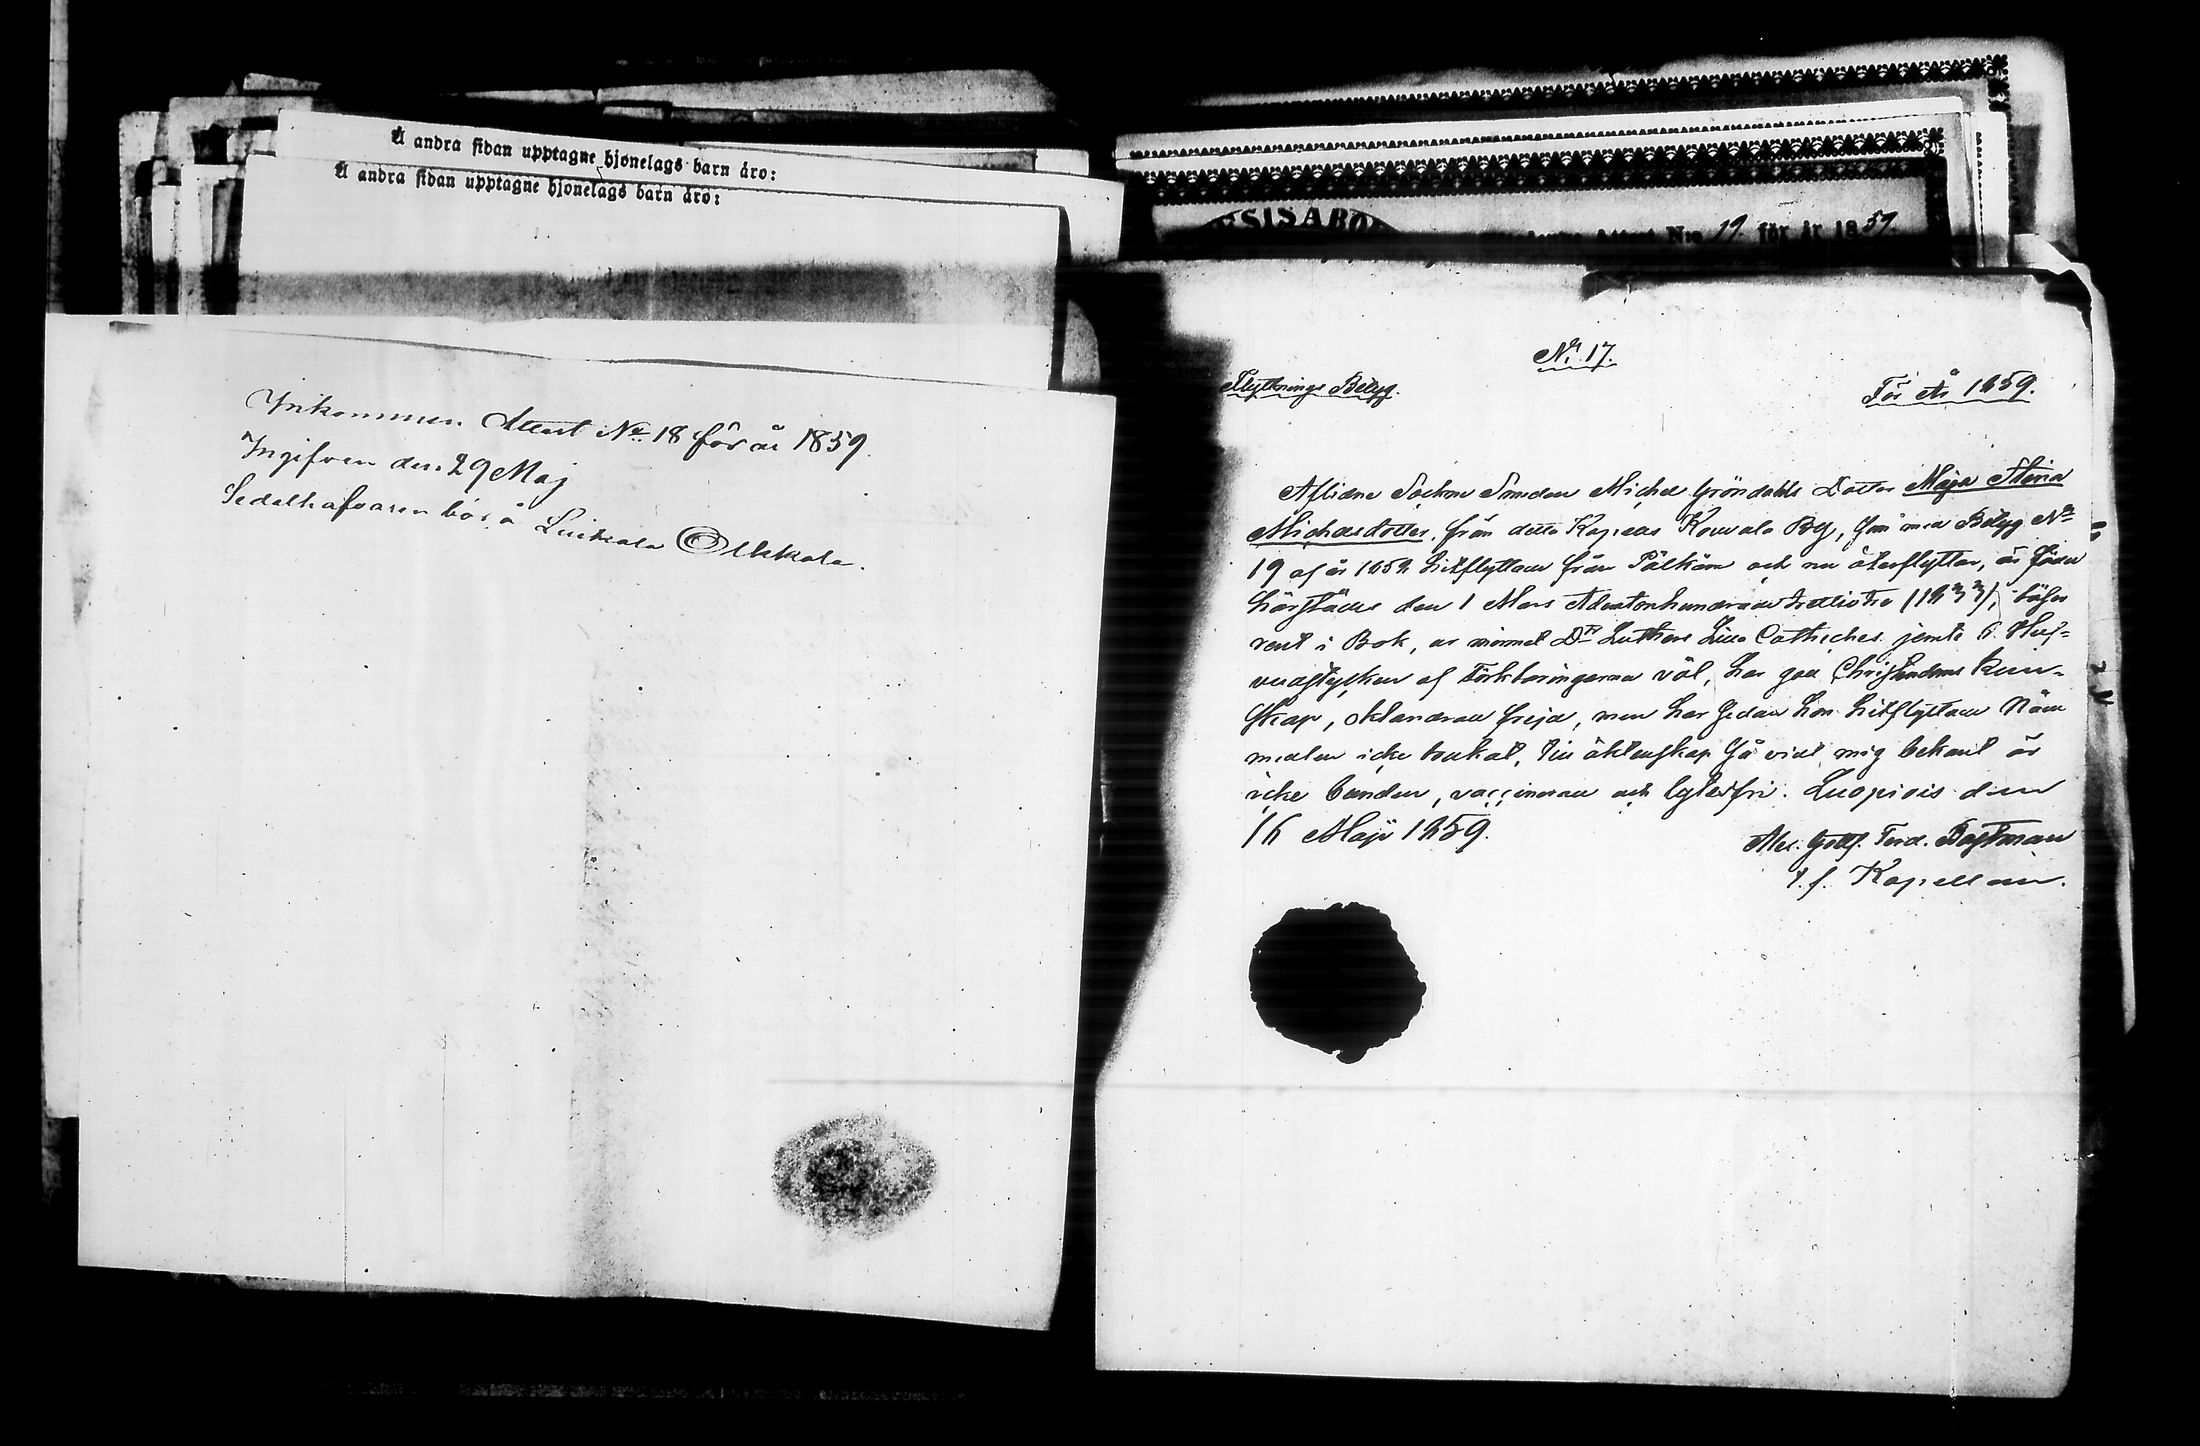 Å andra sidan upptagne hjonelags barn äro:
Å andra sidan upptagne hjonelags barn äro:
Inkommen Attest No 18 för år 1859.
Ingifven den 29 Maj
Sedelhafvaren bor å Luikala Ollkkala.
SISARO
Attest N:o 19. för år 1859.
No 17.
Flyttnings Betyg.
För År 1859.
Aflidne Sockne Smeden Michel Gröndahls Dotter Maja Stina
Michelsdotter, från detta Kapells Kouvala By, som med Betyg No
19 af år 1852 hitflyttade från Pälkäne och nu återflyttar, är född
härstädes den 1 Mars Adertonhundrade trettiotre (1833), läser
rent i Bok, ur minnet Dr Luthers Lilla Catheches jemte 6 Huf-
vudstycken af Förklaringarna väl, har god Christendoms kun-
skap, oklandrad frejd, men har sedan hon hitflyttade Näm
malen icke bevistat, till äktenskap så vidt mig bekant är
icke bunden, vaccinerad och lytesfri. Luopiois den
16 Maji 1859.
Alex. Gottf. Ferd. Bastman
V. f. Kapellan.